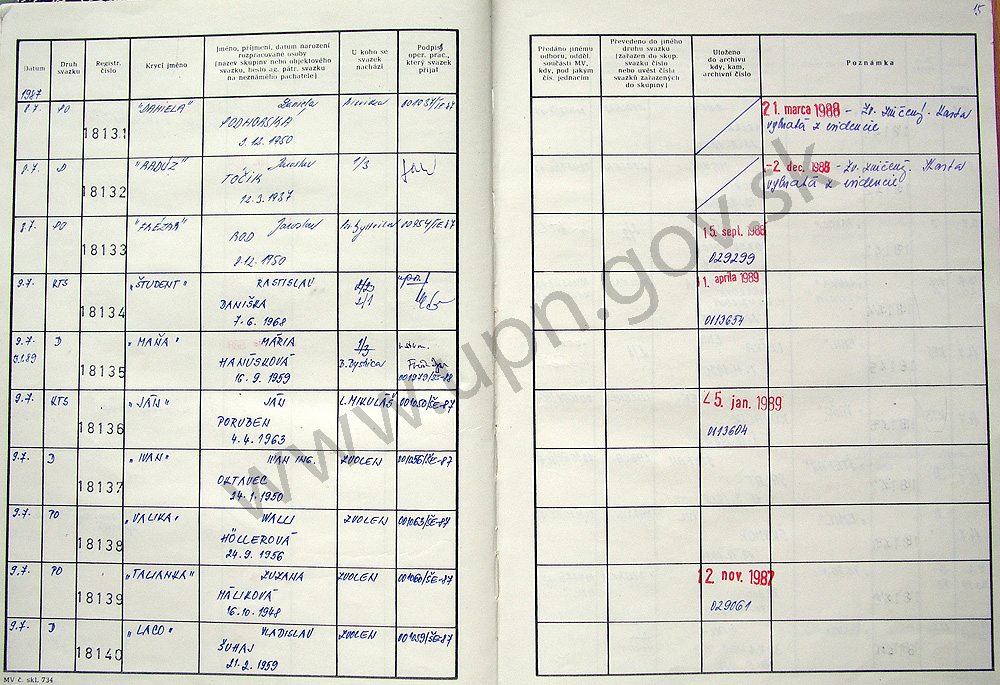 15
Datum
Druh svazku
Registr. číslo
Krycí jméno
Jméno, příjmení, datum narození
rozpracované osoby
(název skupiny nebo objektového
svazku, heslo ag. pátr. svazku
na neznámého pachatele)
U koho se
svazek
nachází
Podpis
oper. prac.,
který svazek
přijal
Předáno jinému
odboru, odděl.
součásti MV,
kdy, pod jakým
čís. jednacím
Převedeno do jiného
druhu svazku
(zařazen do skup.
svazku číslo
nebo uvést čísla
svazků zařazených
do skupiny)
Uloženo
do archivu
kdy, kam,
archivní číslo
Poznámka
1987
8.7. PO 18131 "DANIELA" Daniela
PODHORSKÁ
9.12.1950
21. marca 1988 - Zv. zničený. Karta
vybratá z evidencie
8.7. D 18132 "RADÚZ" Jaroslav 1/3
TOČÍK
12.3.1937
-2. dec. 1988 - Zv. zničený. Karta
vybratá z evidencie
8.7. PO 18133 Jaroslav
8.12.1950
15. sept. 1988
029299
9.7. KTS 18134 "ŠTUDENT" RASTISLAV
DANIŠKA 2/1
7.6.1968
1. apríla 1989
0113654
9.7. D 18135 "MAŇA" MÁRIA 1/3
HANÚSKOVÁ B. Bystrica
16.9.1959 001079/ŠE-88
9.7. KTS 18136 "JÁN" JÁN L. MIKULÁŠ 001050/ŠE-87
PORUBEN
4.4.1963
25. jan. 1989
0113604
9.7. D 18137 "IVAN" IVAN ING. ZVOLEN 001056/ŠE-87
OKTAVEC
24.1.1950
9.7. PO 18138 "VALIKA" WALLI ZVOLEN 001063/ŠE-87
HÖLLEROVÁ
24.9.1956
9.7. PO 18139 "TALIANKA" ZUZANA ZVOLEN 001060/ŠE-87
MÁLIKOVÁ
16.10.1948
12. nov. 1987
029061
9.7. D 18140 "LACO" VLADISLAV ZVOLEN 001059/ŠE-87
ŠUHAJ
21.2.1959
MV č. skl. 734
www.upn.gov.sk